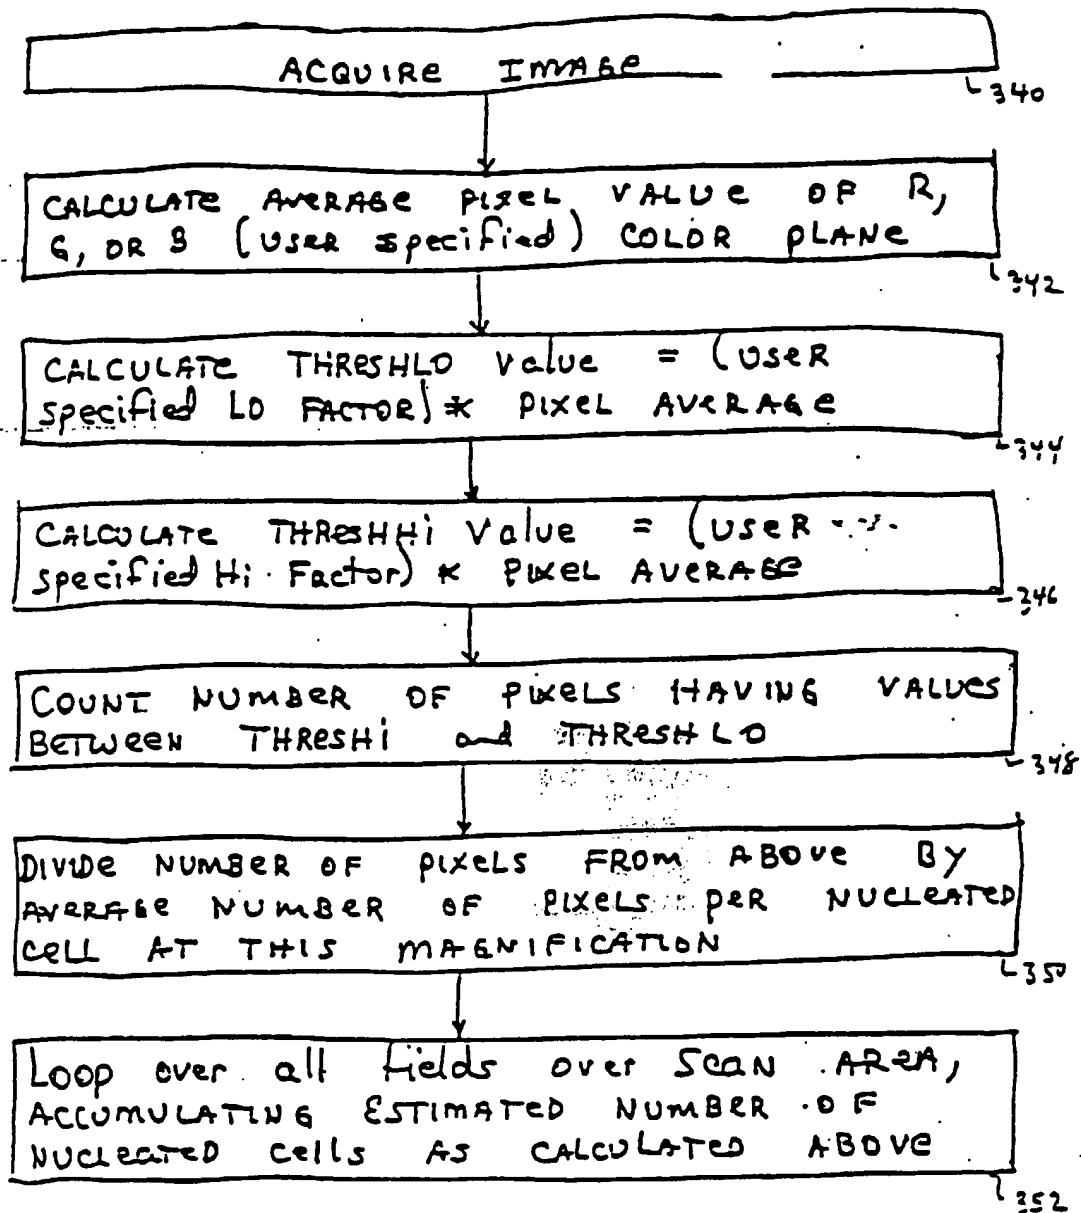 ACQUIRE IMAGE
340
CALCULATE AVERAGE PIXEL VALUE OF R,
G, OR B (USER specified) COLOR PLANE
342
CALCULATE THRESHLO Value = (USER
specified LO FACTOR) * PIXEL AVERAGE
344
CALCULATE THRESHHi Value = (USER
specified Hi Factor) * PIXEL AVERAGE
346
COUNT NUMBER OF PIXELS HAVING VALUES
BETWEEN THRESHi and THRESHLO
348
DIVIDE NUMBER OF PIXELS FROM ABOVE BY
AVERAGE NUMBER OF PIXELS PER NUCLEATED
CELL AT THIS MAGNIFICATION
350
Loop over all fields over SCAN AREA,
ACCUMULATING ESTIMATED NUMBER OF
NUCLEATED CELLS AS CALCULATED ABOVE
352